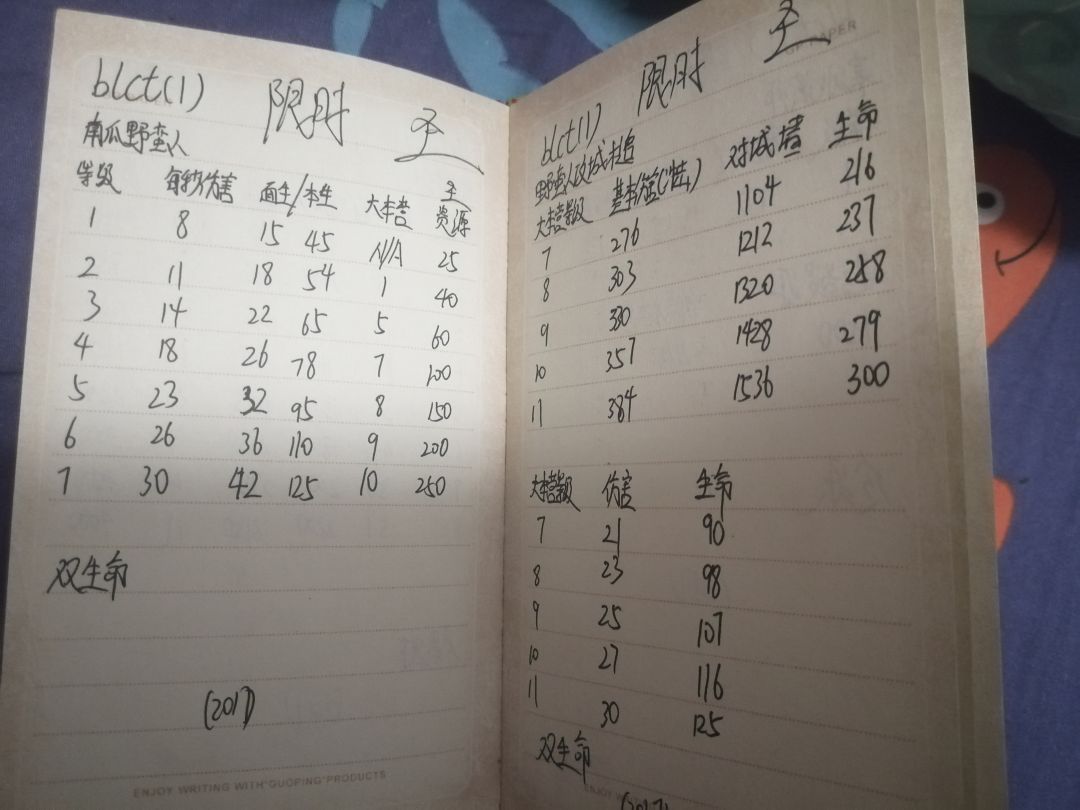 blct(1) 限时 圣
南瓜野蛮人
等级 每秒伤害 面生/本生 大本营 圣资源
1 8 15 45 N/A 25
2 11 18 54 1 40
3 14 22 65 5 60
4 18 26 78 7 100
5 23 32 95 8 150
6 26 36 110 9 200
7 30 42 125 10 250
双生命
(2017)
ENJOY WRITING WITH"GUOPING"PRODUCTS
blct(1) 限时 圣
PAPER
野蛮人攻城槌
大本营等级 基本伤害 对城墙 生命
7 276 1104 216
8 303 1212 237
9 330 1320 258
10 357 1428 279
11 384 1536 300
大本营等级 伤害 生命
7 21 90
8 23 98
9 25 107
10 27 116
11 30 125
双生命
(2017)